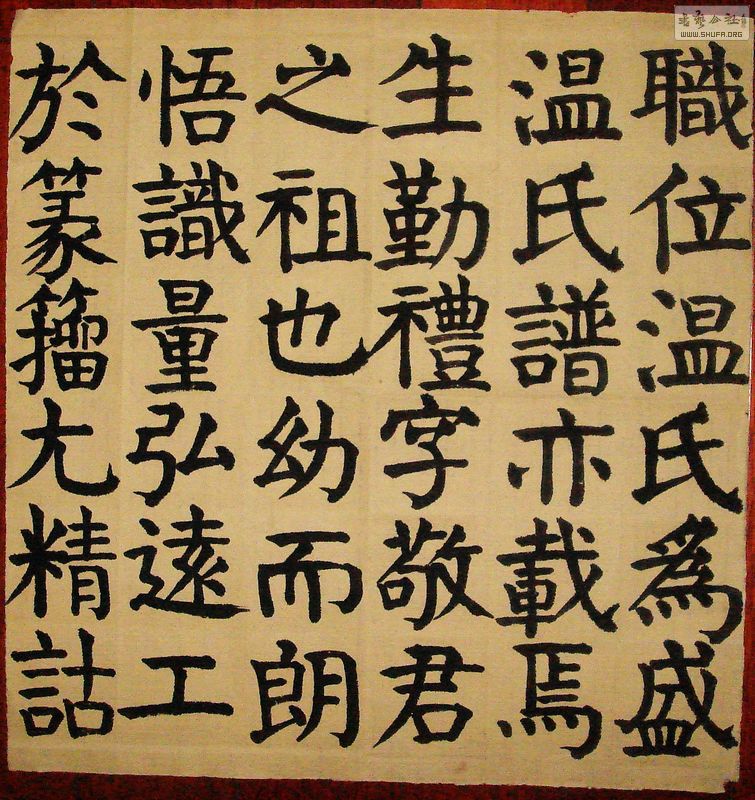 職位温氏為盛
温氏譜亦載焉
生勤禮字敬君
之祖也幼而朗
悟識量弘遠工
於篆籀尤精詁
WWW.SHUFA.ORG